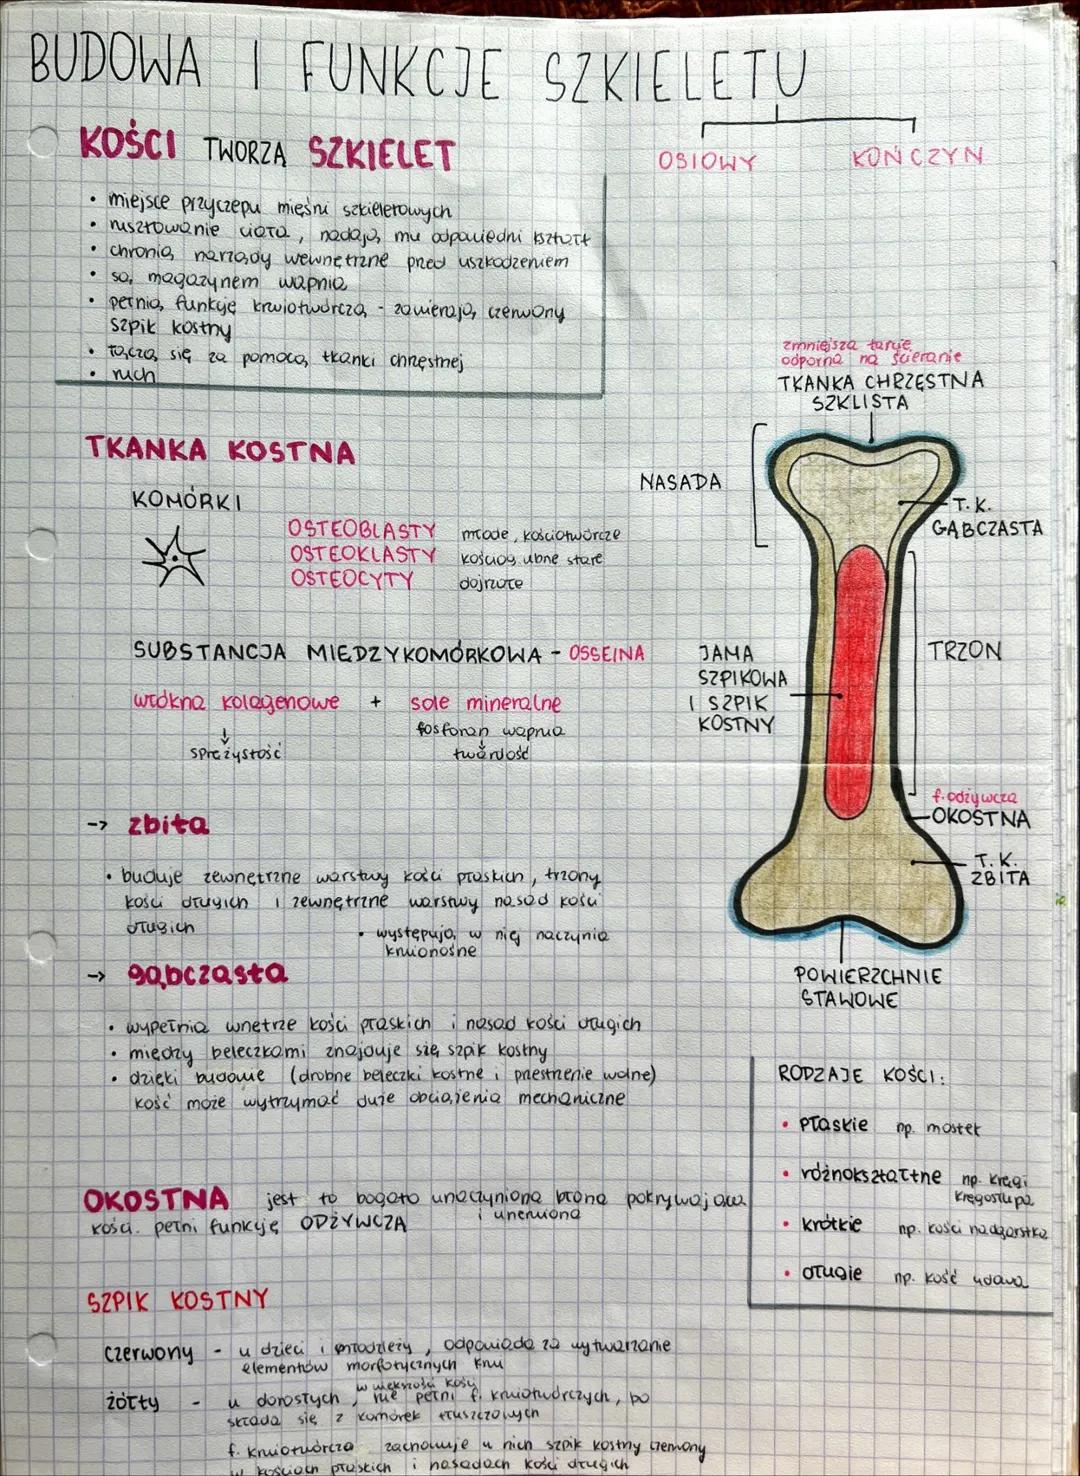 BUDOWA I FUNKCJE SZKIELETU
OSIOWY
KOŃCZYN
KOŚCI TWORZĄ SZKIELET
• miejsce przyczepu mięśni szkieletowych
• rusztowanie ciała, nadają mu odpowiedni kształt
• chronią narządy wewnętrzne przed uszkodzeniem
• są magazynem wapnia
• pełnią funkcję krwiotwórczą - zawierają czerwony
szpik kostny
• łączą się za pomocą tkanki chrzęstnej
• ruch
TKANKA KOSTNA
KOMÓRKI
OSTEOBLASTY młode, kościotwórcze
OSTEOKLASTY kościogubne stare
OSTEOCYTY dojrzałe
SUBSTANCJA MIĘDZYKOMÓRKOWA - OSSEINA
włókna kolagenowe + sole mineralne
↓
sprężystość
fosforan wapnia
↓
twardość
-> zbita
• buduje zewnętrzne warstwy kości płaskich, trzony
kości długich i zewnętrzne warstwy nasad kości
długich
• występują w niej naczynia
krwionośne
-> gąbczasta
• wypełnia wnętrze kości płaskich i nasad kości długich
• między beleczkami znajduje się szpik kostny
• dzięki budowie (drobne beleczki kostne i przestrzenie wolne)
kość może wytrzymać duże obciążenia mechaniczne
OKOSTNA jest to bogato unaczyniona błona pokrywająca
i unerwiona
kości. pełni funkcję ODŻYWCZĄ
SZPIK KOSTNY
czerwony - u dzieci i młodzieży, odpowiada za wytwarzanie
elementów morfotycznych krwi
w większości kości
żółty - u dorosłych, nie pełni f. krwiotwórczych, bo
składa się z komórek tłuszczowych
f. krwiotwórczą zachowuje u nich szpik kostny czerwony
w kościach płaskich i nasadach kości długich
zmniejsza tarcie
odporna na ścieranie
TKANKA CHRZĘSTNA
SZKLISTA
NASADA
T. K.
GĄBCZASTA
TRZON
JAMA
SZPIKOWA
I SZPIK
KOSTNY
f. odżywcza
OKOSTNA
T. K.
ZBITA
POWIERZCHNIE
STAWOWE
RODZAJE KOŚCI:
• płaskie np. mostek
• różnokształtne np. kręgi
kręgosłupa
• krótkie np. kości nadgarstka
• długie np. kość udowa